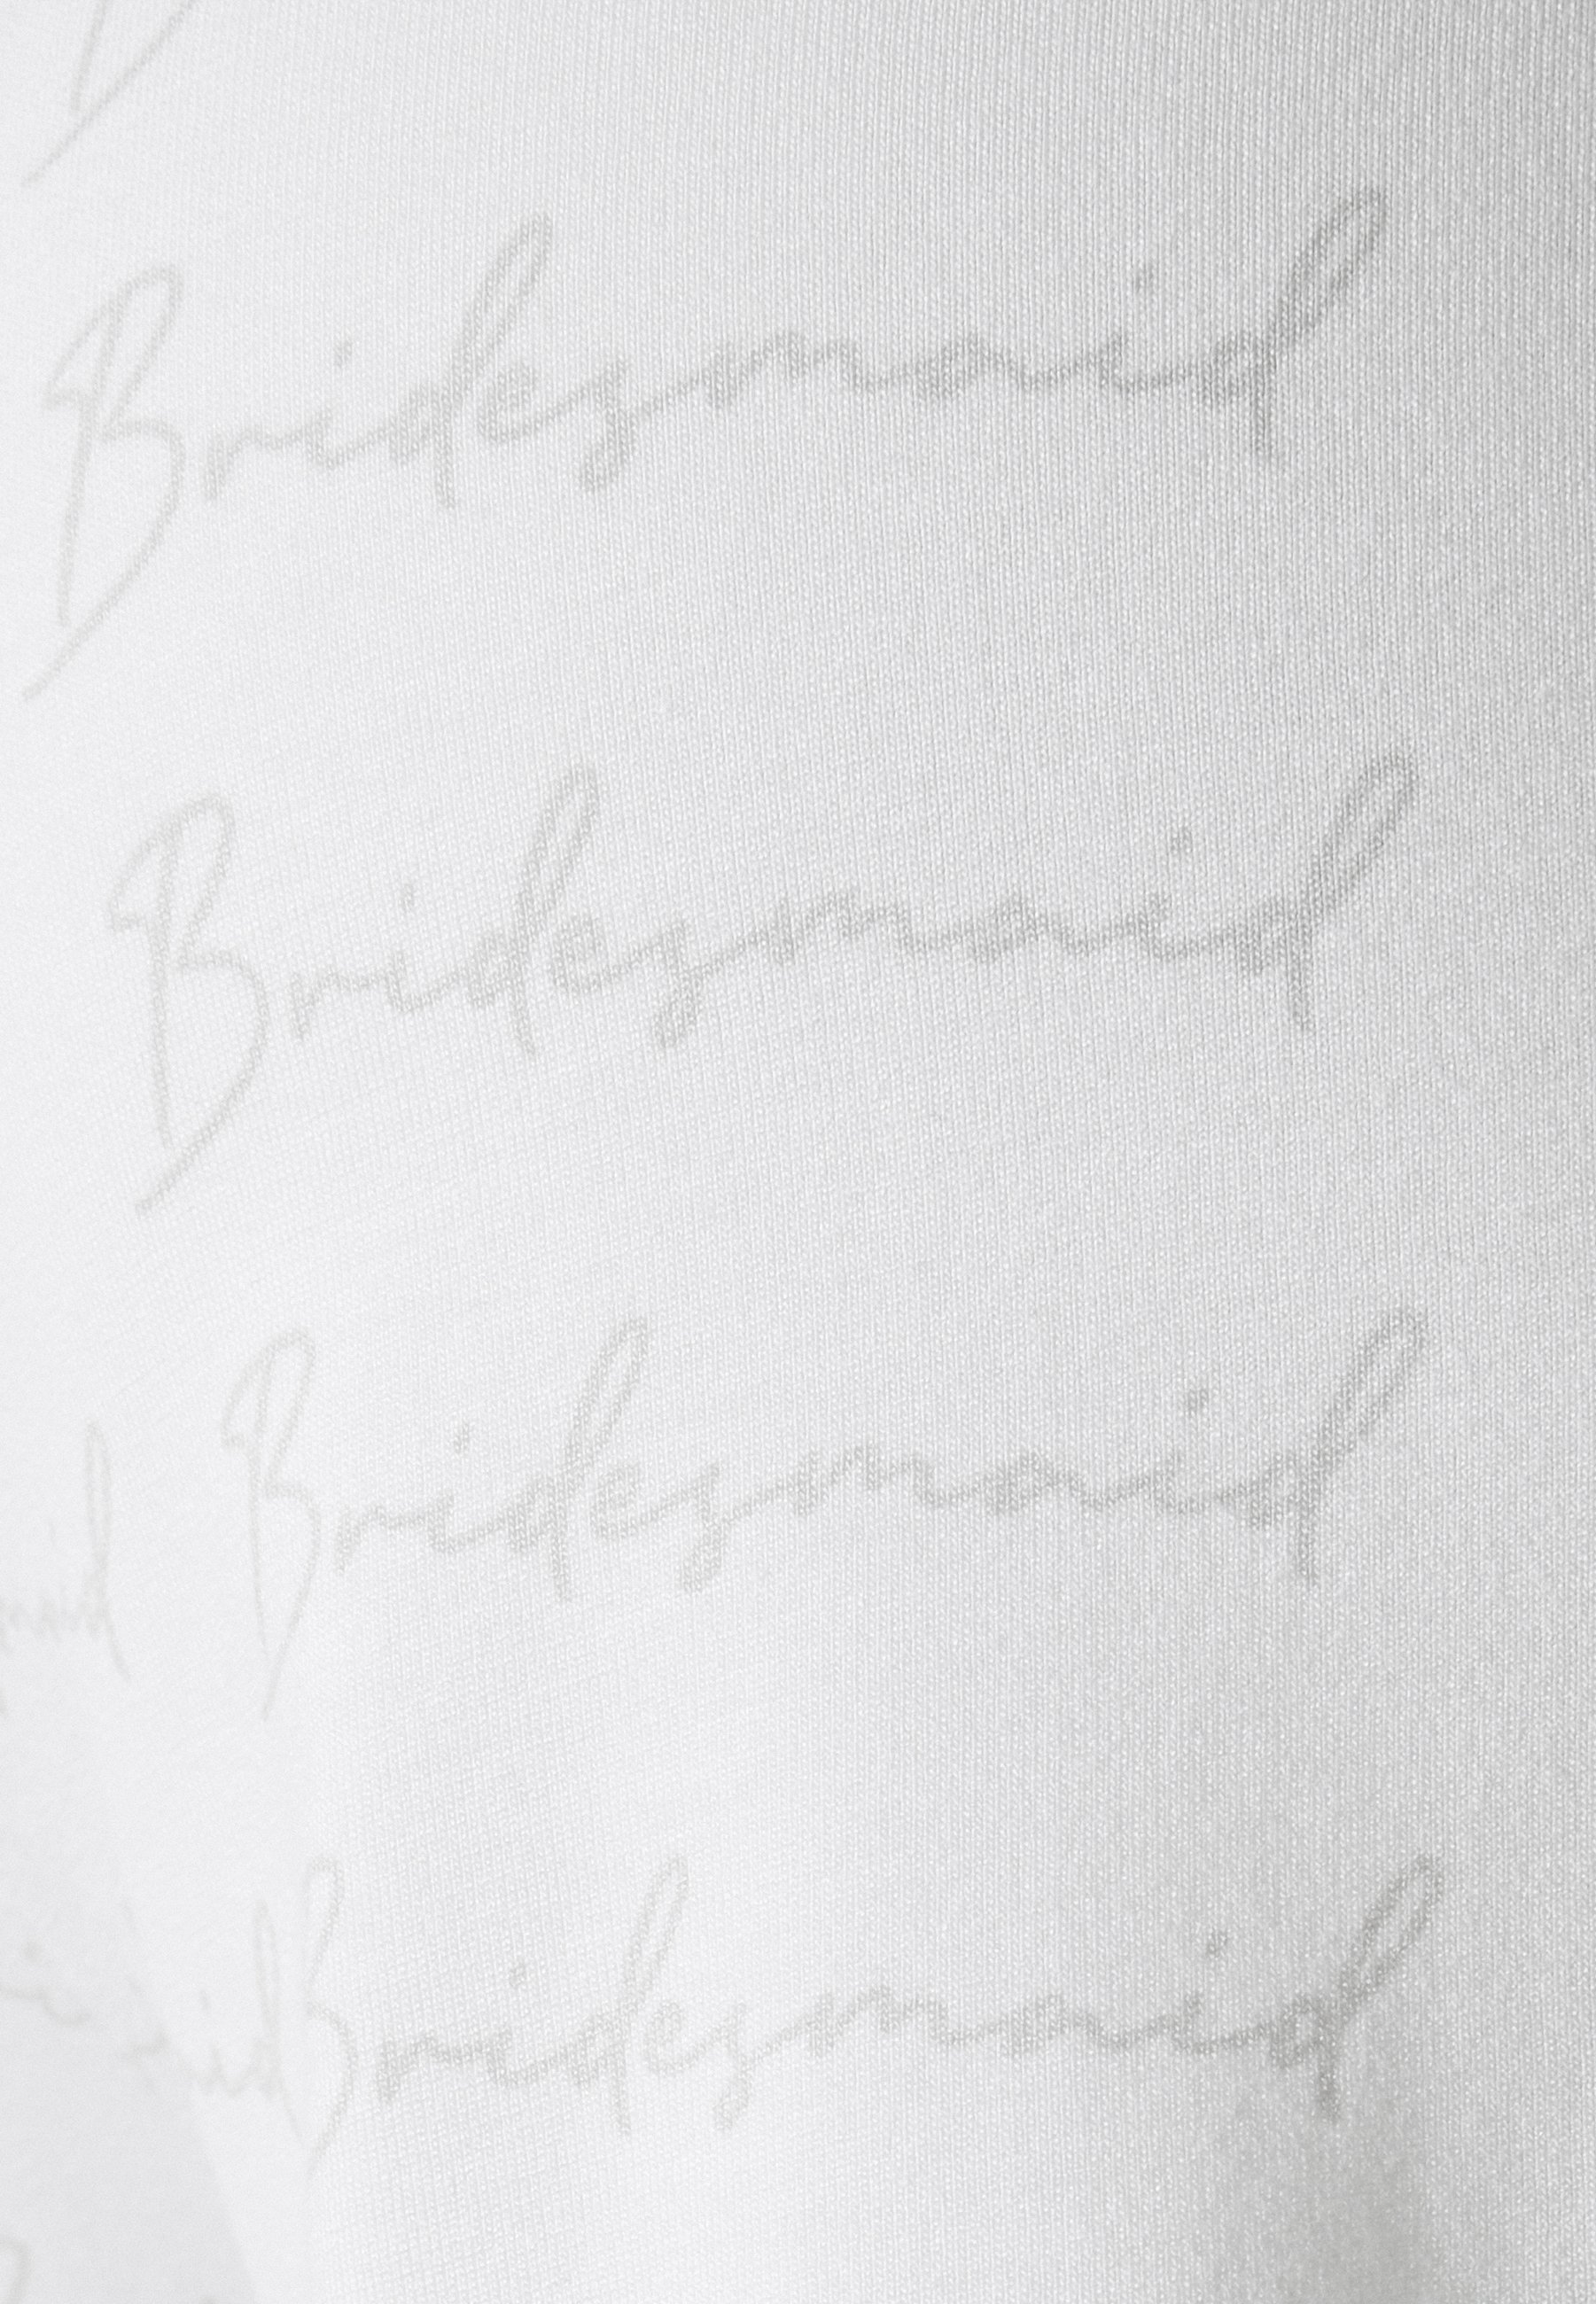 Bridesmaid
Bridesmaid
Bridesmaid
Bridesmaid